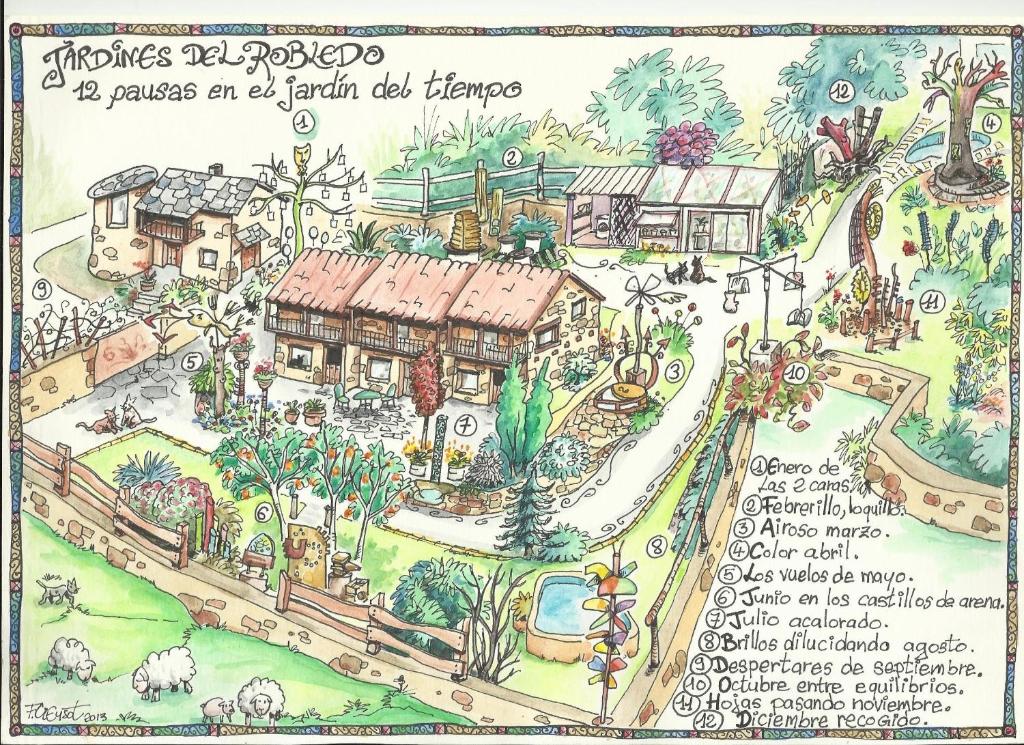 JARDINES DEL ROBLEDO
12 pausas en el jardín del tiempo
1
2
12
4
9
5
3
11
7
10
6
8
① Enero de
las 2 caras.
② Febrerillo, loquillo.
③ Airoso marzo.
④ Color abril.
⑤ Los vuelos de mayo.
⑥ Junio en los castillos de arena.
⑦ Julio acalorado.
⑧ Brillos dilucidando agosto.
⑨ Despertares de septiembre.
⑩ Octubre entre equilibrios.
⑪ Hojas pasando noviembre.
⑫ Diciembre recogido.
2013